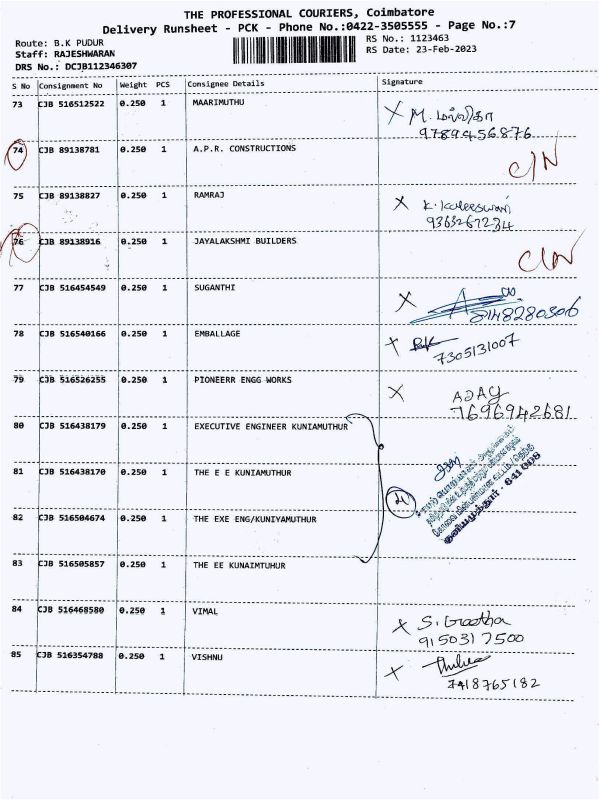 THE PROFESSIONAL COURIERS, Coimbatore
Delivery Runsheet - PCK - Phone No.:0422-3505555 - Page No.:7
Route: B.K PUDUR
RS No.: 1123463
Staff: RAJESHWARAN
RS Date: 23-Feb-2023
DRS No.: DCJB112346307
S No Consignment No Weight PCS Consignee Details Signature
73 CJB 516512522 0.250 1 MAARIMUTHU M.
9789456876
74 CJB 89138781 0.250 1 A.P.R. CONSTRUCTIONS C/N
75 CJB 89138827 0.250 1 RAMRAJ K. Kaleeswari
9363267234
76 CJB 89138916 0.250 1 JAYALAKSHMI BUILDERS C/N
77 CJB 516454549 0.250 1 SUGANTHI
8148280306
78 CJB 516540166 0.250 1 EMBALLAGE
7305131007
79 CJB 516526255 0.250 1 PIONEERR ENGG WORKS AJAY
7696942681
80 CJB 516438179 0.250 1 EXECUTIVE ENGINEER KUNIAMUTHUR
81 CJB 516438170 0.250 1 THE E E KUNIAMUTHUR
4
82 CJB 516504674 0.250 1 THE EXE ENG/KUNIYAMUTHUR
குனியமுத்தூர் - 641 008
83 CJB 516505857 0.250 1 THE EE KUNAIMTUHUR
84 CJB 516468580 0.250 1 VIMAL S. Geetha
9150317500
85 CJB 516354788 0.250 1 VISHNU
7418765182